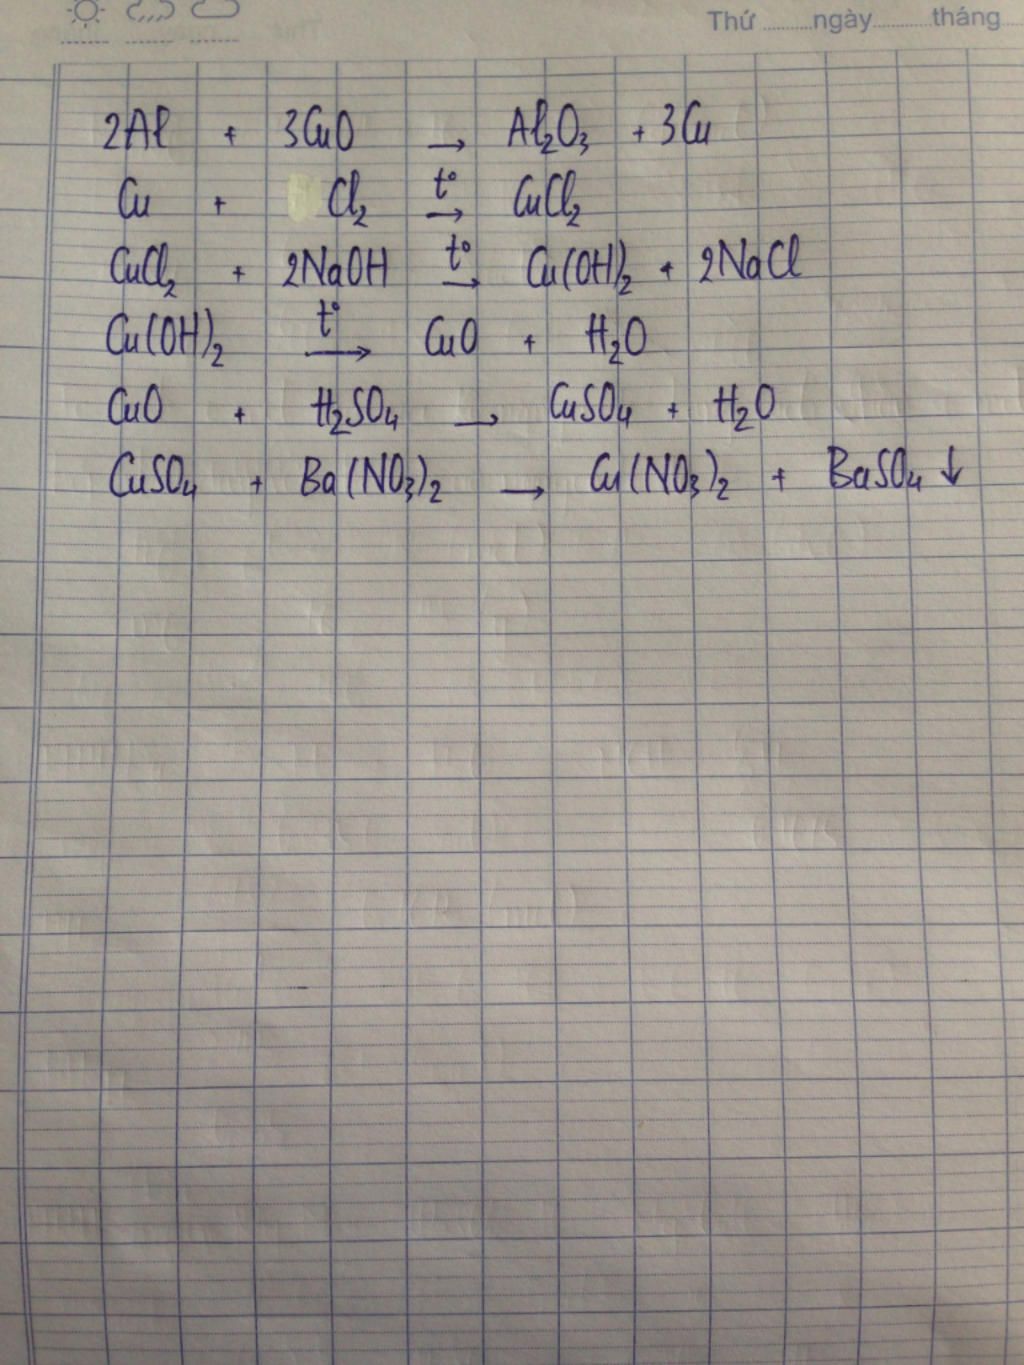 Thứ ..........ngày...........tháng.....
2Al + 3CuO → Al₂O₃ + 3Cu
Cu + Cl₂ t°→ CuCl₂
CuCl₂ + 2NaOH t°→ Cu(OH)₂ + 2NaCl
Cu(OH)₂ t°→ CuO + H₂O
CuO + H₂SO₄ → CuSO₄ + H₂O
CuSO₄ + Ba(NO₃)₂ → Cu(NO₃)₂ + BaSO₄ ↓